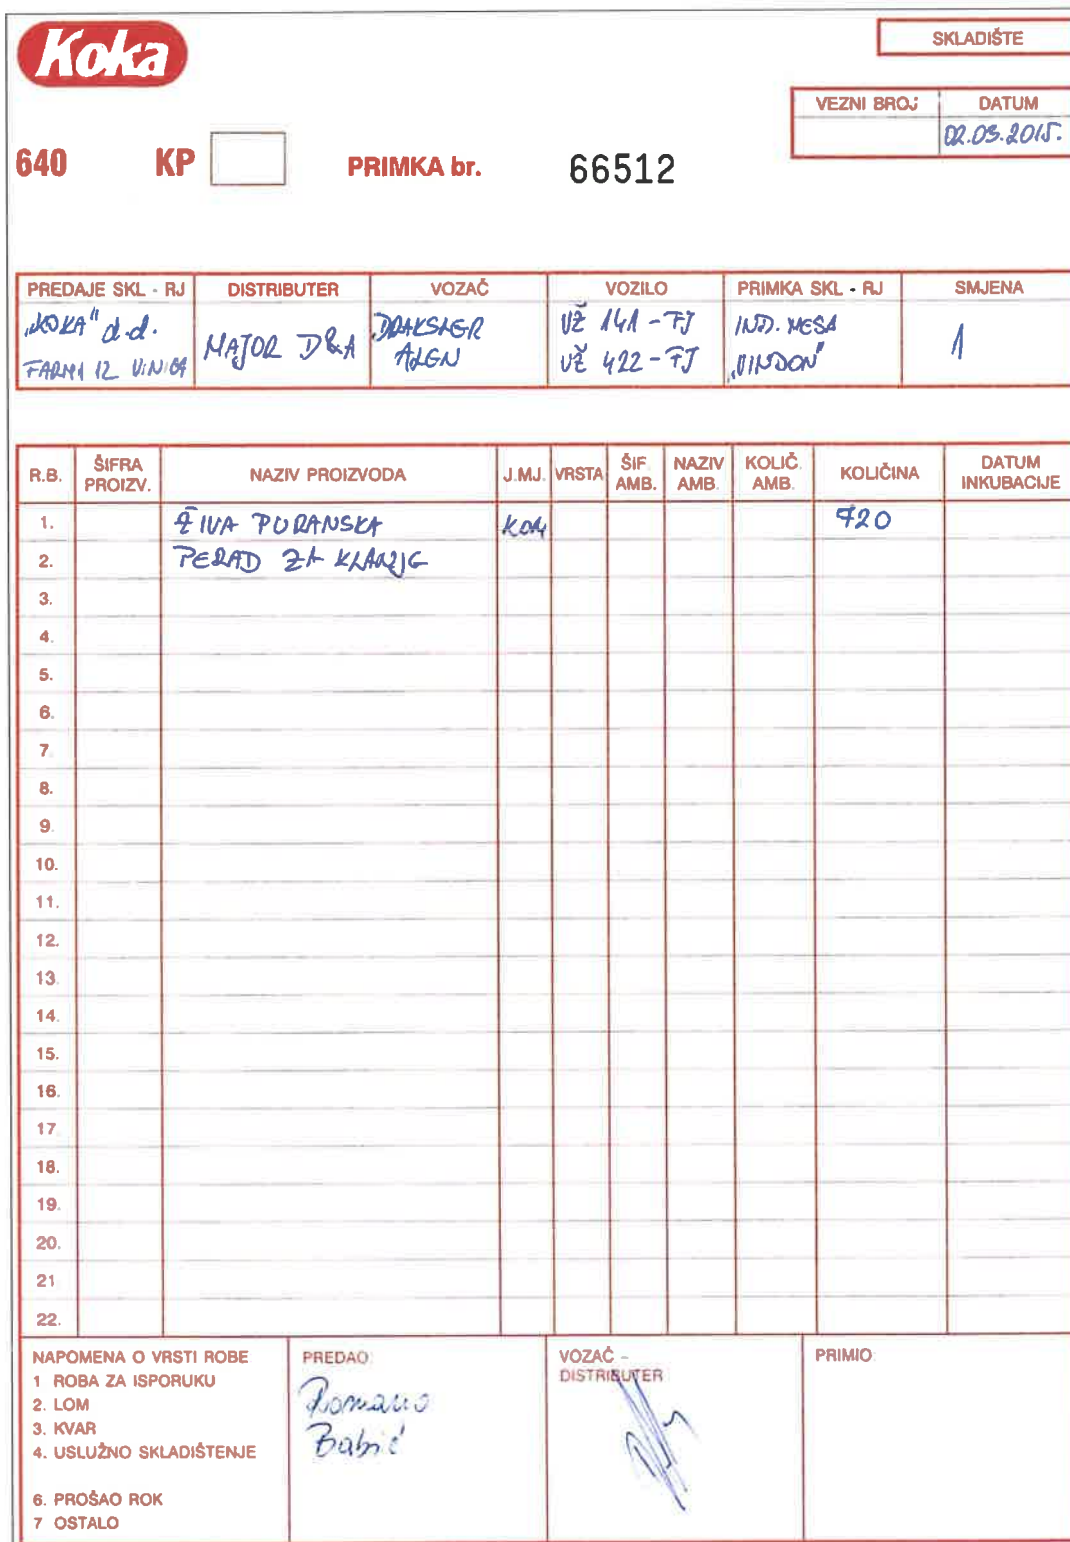 Koka
SKLADIŠTE
VEZNI BROJ DATUM
02.03.2015.
640 KP PRIMKA br. 66512
PREDAJE SKL - RJ DISTRIBUTER VOZAČ VOZILO PRIMKA SKL - RJ SMJENA
"KOKA" d.d. MAJOR D&A DRAKSLER VŽ 141-FJ IND. MESA 1
FARMA 12 VINICA ALEN VŽ 422-FJ "VINDON"
R.B. ŠIFRA PROIZV. NAZIV PROIZVODA J.MJ. VRSTA ŠIF. AMB. NAZIV AMB. KOLIČ. AMB. KOLIČINA DATUM INKUBACIJE
1. ŽIVA PURANSKA KOM 720
2. PERAD ZA KLANJE
3.
4.
5.
6.
7.
8.
9.
10.
11.
12.
13.
14.
15.
16.
17.
18.
19.
20.
21
22.
NAPOMENA O VRSTI ROBE
1 ROBA ZA ISPORUKU
2. LOM
3. KVAR
4. USLUŽNO SKLADIŠTENJE
6. PROŠAO ROK
7 OSTALO
PREDAO:
Romano
Babić
VOZAČ -
DISTRIBUTER
PRIMIO